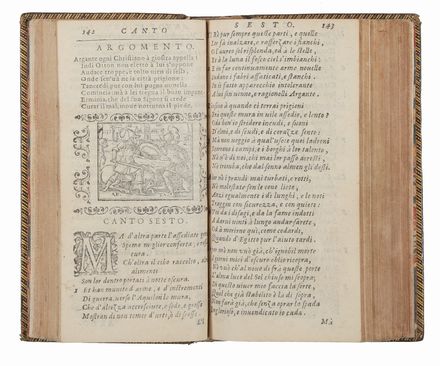 142 CANTO
ARGOMENTO.
Argante ogni Christiano à giostra appella:
Indi Otton non eletto à lui s'oppone
Audace troppo, è tolto vien di sella,
Onde sen và ne la città prigione:
Tancredi pur con lui pugna nouella
Comincia; mà à lei tregua il buio impone.
Erminia, che del suo Signor si crede
Curar il mal, moue notturna il piede.
CANTO SESTO.
MA d'altra parte l'assediate genti
Speme miglior conforta, e rassicura.
Ch'oltra il cibo raccolto, altri
alimenti
Son lor dentro portati à notte oscura.
Et han munite d'arme, e d'instromenti
Di guerra, verso l'Aquilon le mura,
Che d'altezza accresciute, e sode, e grosse
Mostran di non temer d'urti, ò di scosse.
E'l
SESTO. 143
E'l Rè pur sempre queste parti, e quelle
Lor fà inalzare, e rafforzare i fianchi,
O l'aureo sol risplenda, ed à le stelle
Et à la luna il fosco ciel s'imbianchi:
E in far continuamente arme nouelle
Sudano i fabri affaticati, e stanchi.
In sì fatto apparecchio intolerante
A lui sen venne, e ragionolli Argante.
E insino à quando ci terrai prigioni
Frà queste mura in vile assedio, e lento?
Odo ben io stridere incudi, e suoni
D'elmi, e di scudi, e di corazze sento:
Mà non veggio à qual'uso; e quei ladroni
Scorrono i campi, e i borghi à lor talento,
Nè v'è di noi, chi mai lor passo arresti,
Nè tromba, che dal sonno almen gli desti.
A lor nè i prandij mai turbati, e rotti,
Nè molestate son le cene liete,
Anzi egualmente i dì lunghi, e le notti
Traggon con sicurezza, e con quiete:
Voi da i disagi, e da la fame indotti
A darui vinti à lungo andar sarete,
Od à morirne quì, come codardi,
Quando d'Egitto pur l'aiuto tardi.
Io per me non vuò già, ch'ignobil morte
I giorni miei d'oscuro oblio ricopra,
Nè vuò ch'al nouo dì frà queste porte
L'alma luce del Sol chiuso mi scopra;
Di questo viuer mio faccia la sorte
Quel che già stabilito è là di sopra,
Non farà già, che senza oprar la spada
Inglorioso, e inuendicato io cada.
Mà